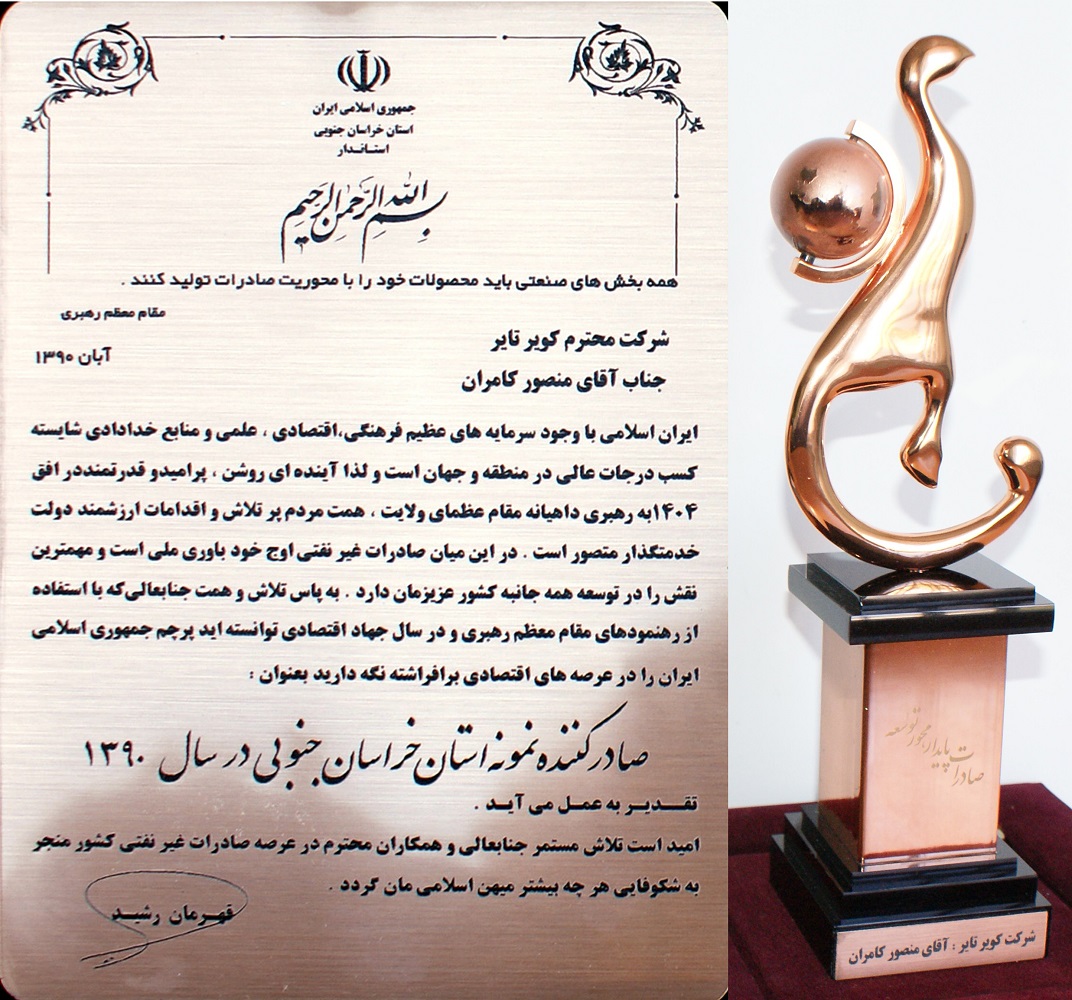 جمهوری اسلامی ایران
استان خراسان جنوبی
استاندار
بسم الله الرحمن الرحیم
همه بخش های صنعتی باید محصولات خود را با محوریت صادرات تولید کنند .
مقام معظم رهبری
شرکت محترم کویر تایر
آبان ۱۳۹۰
جناب آقای منصور کامران
ایران اسلامی با وجود سرمایه های عظیم فرهنگی،اقتصادی ، علمی و منابع خدادادی شایسته
کسب درجات عالی در منطقه و جهان است و لذا آینده ای روشن ، پرامیدو قدرتمنددر افق
۱۴۰۴به رهبری داهیانه مقام عظمای ولایت ، همت مردم پر تلاش و اقدامات ارزشمند دولت
خدمتگذار متصور است . در این میان صادرات غیر نفتی اوج خود باوری ملی است و مهمترین
نقش را در توسعه همه جانبه کشور عزیزمان دارد . به پاس تلاش و همت جنابعالی‌که با استفاده
از رهنمودهای مقام معظم رهبری و در سال جهاد اقتصادی توانسته اید پرچم جمهوری اسلامی
ایران را در عرصه های اقتصادی برافراشته نگه دارید بعنوان :
صادرکننده نمونه استان خراسان جنوبی در سال ۱۳۹۰
تقـــدیـــر به عمــل می آیــد .
امید است تلاش مستمر جنابعالی و همکاران محترم در عرصه صادرات غیر نفتی کشور منجر
به شکوفایی هر چه بیشتر میهن اسلامی مان گردد .
قهرمان رشید
صادرات پایدار محور توسعه
شرکت کویر تایر : آقای منصور کامران